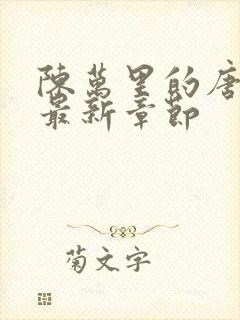 陳萬里的唐
最新章節
菊文字